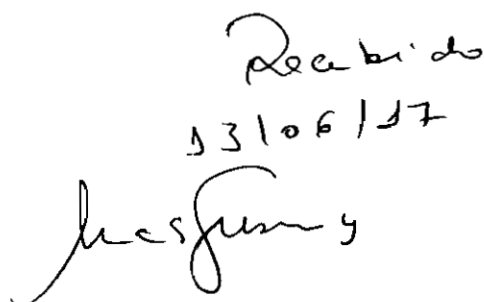 Recibido
13/06/17